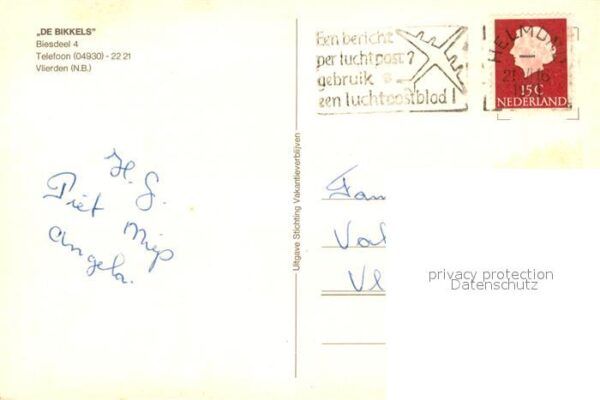 „DE BIKKELS"
Biesdeel 4
Telefoon (04930) - 22 21
Vlierden (N.B.)
Een bericht
per luchtpost?
gebruik
een luchtpostblad!
HELMOND
15C
NEDERLAND
Uitgave Stichting Vakantieverblijven
H. G.
Piet Miep
Angela.
Fam
Val
Vl
privacy protection
Datenschutz